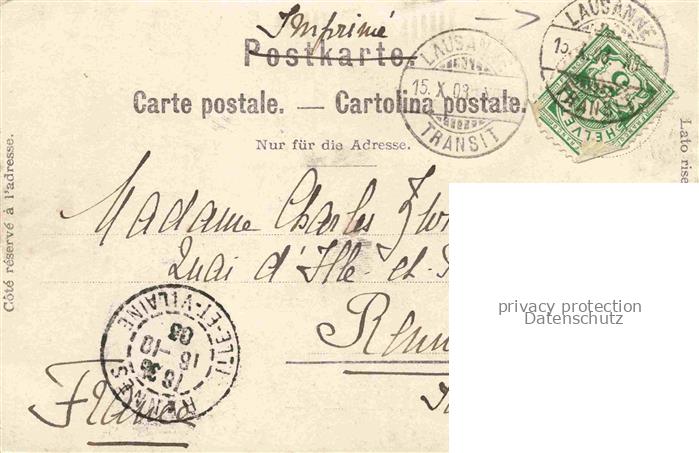 Imprimé
Postkarte.
Carte postale. — Cartolina postale.
Nur für die Adresse.
LAUSANNE
15.X.03
TRANSIT
LAUSANNE
15.X.03
TRANSIT
HELVE
Côté réservé à l'adresse.
Lato rise
Madame Charles
Quai d'Ille-et-
Renn
France
RENNES
18 30
16-10
03
ILLE-ET-VILAINE
privacy protection
Datenschutz